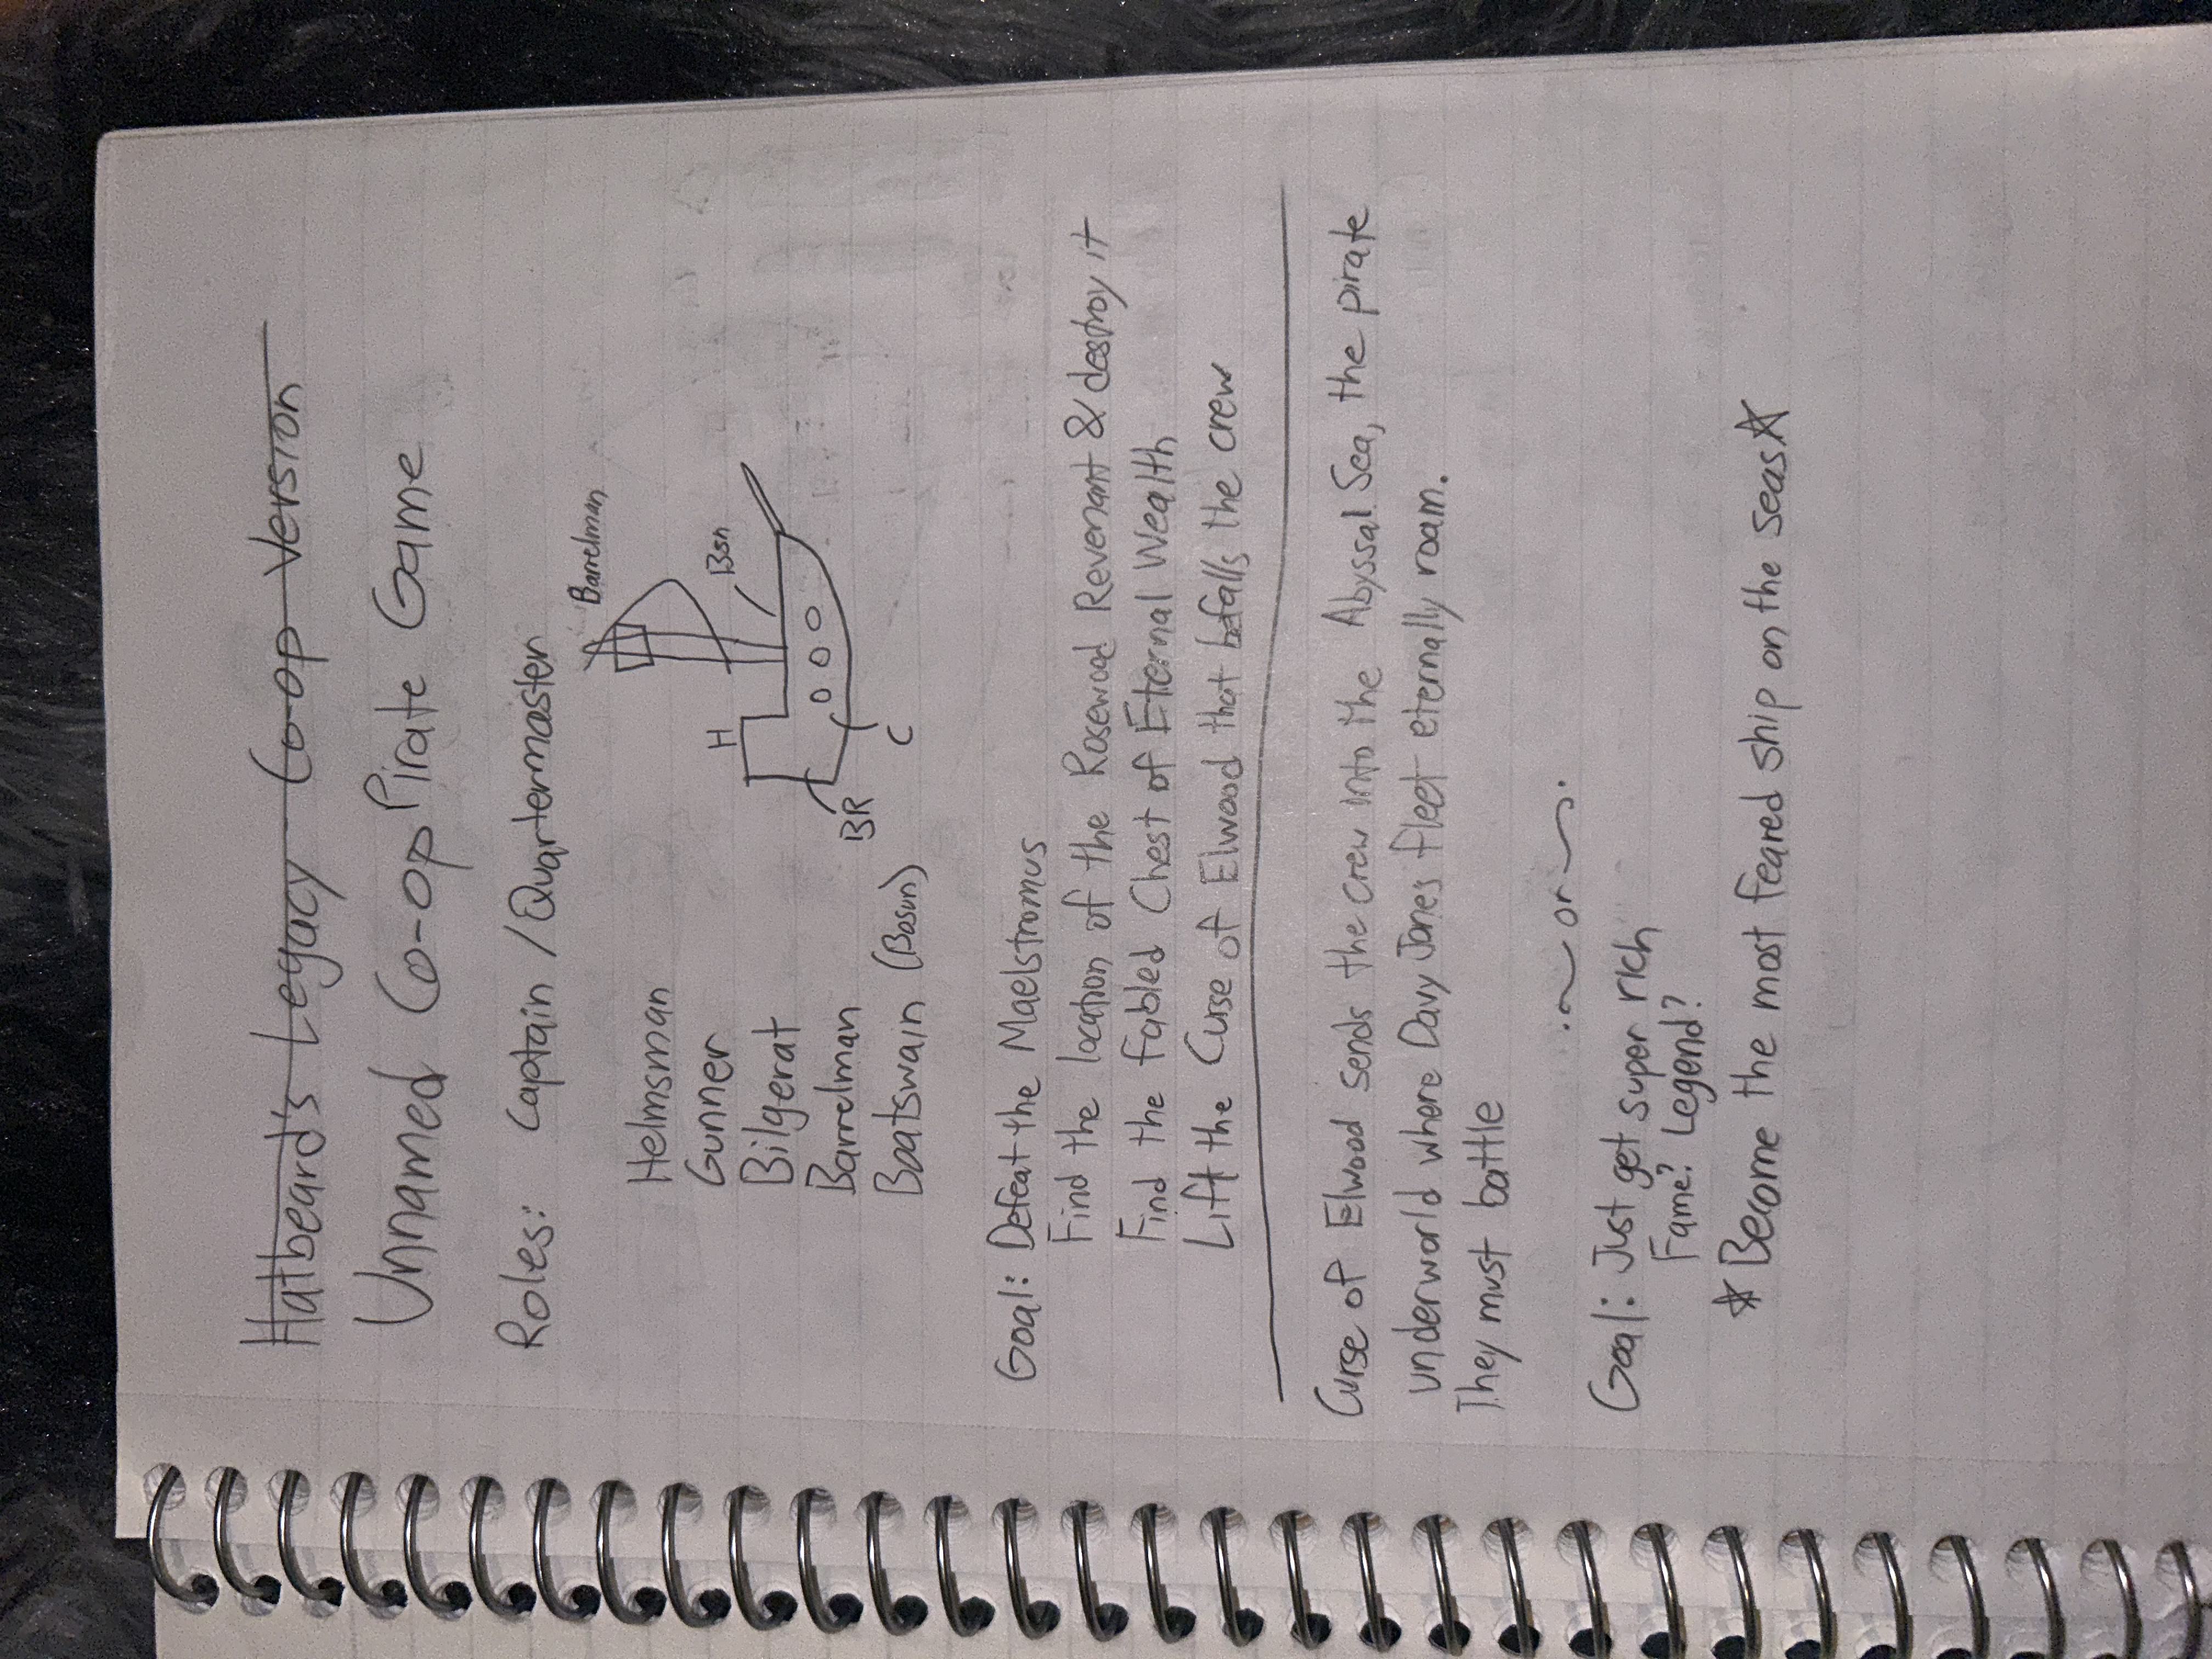 Hatbeard's Legacy Co-op Version
Unnamed Co-op Pirate Game
Roles: Captain / Quartermaster
Barrelman
Helmsman
Gunner
H
Bsn
Bilgerat
Barrelman
BR
Boatswain (Bosun)
C
Goal: Defeat the Maelstromus
Find the location of the Rosewood Revenant & destroy it
Find the fabled Chest of Eternal Wealth
Lift the Curse of Elwood that befalls the crew
Curse of Elwood sends the crew into the Abyssal Sea, the pirate
underworld where Davy Jones fleet eternally roam.
They must battle
or
Goal: Just get super rich
Fame? Legend?
☆ Become the most feared ship on the seas ☆